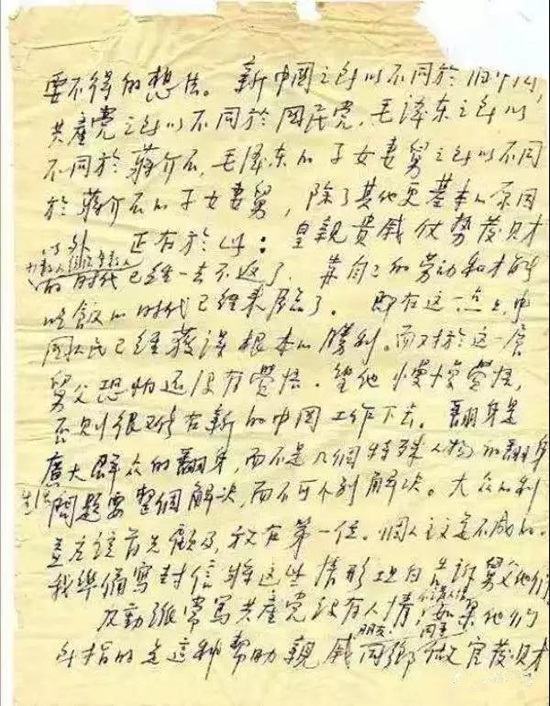 要不得的想法。新中國之所以不同於旧中国，
共產党之所以不同於国民党，毛泽东之所以
不同於蔣介石，毛泽东的子女妻舅之所以不同
於蔣介石的子女妻舅，除了其他更基本的原因
以外，正在於此：皇親貴戚仗势發财
少數人统治多數人
的时代已经一去不返了。靠自己的劳动和才能
吃飯的时代已經来臨了。在这一点上，中
国人民已经獲得根本的勝利。而对於这一层
舅父恐怕还没有覺悟。望他慢慢覺悟，
否则很难在新的中国工作下去。翻身是
廣大群众的翻身，而不是几個特殊人物的翻身
生活問題要整個解决，而不可个别解决。大众的利
益应該首先顧及，放在第一位。個人主义是不成的。
我準備寫封信将这些情形坦白告訴舅父他们
反動派常罵共產党没有人情，不講人情，如果他们
所指的是这种帮助親戚朋友、同鄉同事做官發财